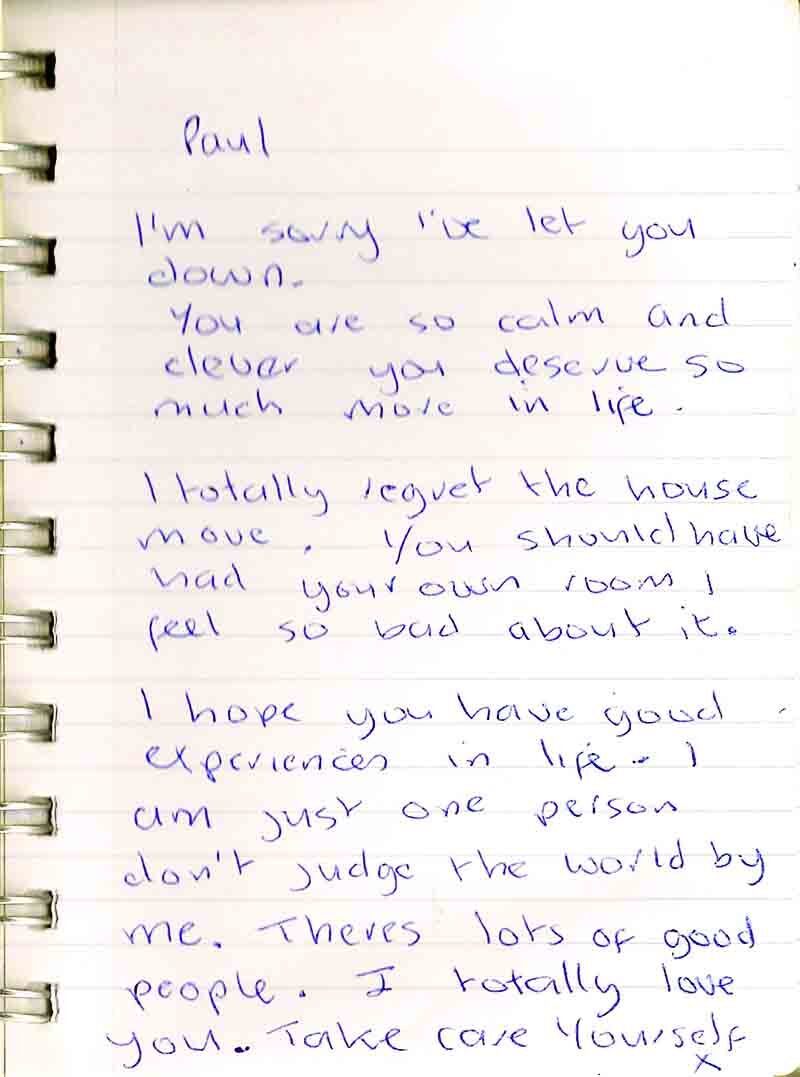 Paul
I'm sorry I've let you
down.
You are so calm and
clever you deserve so
much more in life.
I totally regret the house
move. You should have
had your own room I
feel so bad about it.
I hope you have good
experiences in life. I
am just one person
don't judge the world by
me. Theres lots of good
people. I totally love
you. Take care Yourself
x